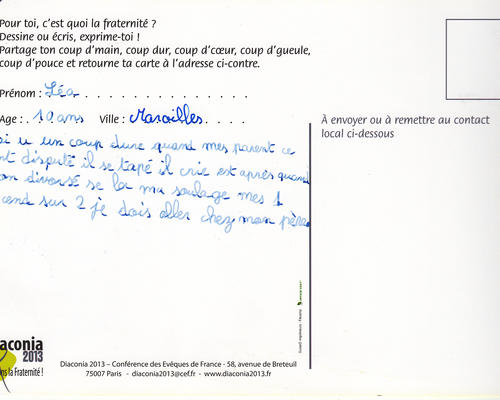 Pour toi, c'est quoi la fraternité ?
Dessine ou écris, exprime-toi !
Partage ton coup d'main, coup dur, coup d'cœur, coup d'gueule,
coup d'pouce et retourne ta carte à l'adresse ci-contre.
Prénom : Léa
Age : 10 ans Ville : Maroilles
À envoyer ou à remettre au contact
local ci-dessous
si u un coup dure quand mes parent ce
nt disputé il se tapé il crie est après quand
on divorsé se la ma soulage mes 1
cend sur 2 je dois aller chez mon père
aconia
2013
ns la Fraternité !
Diaconia 2013 – Conférence des Evêques de France - 58, avenue de Breteuil
75007 Paris - diaconia2013@cef.fr - www.diaconia2013.fr